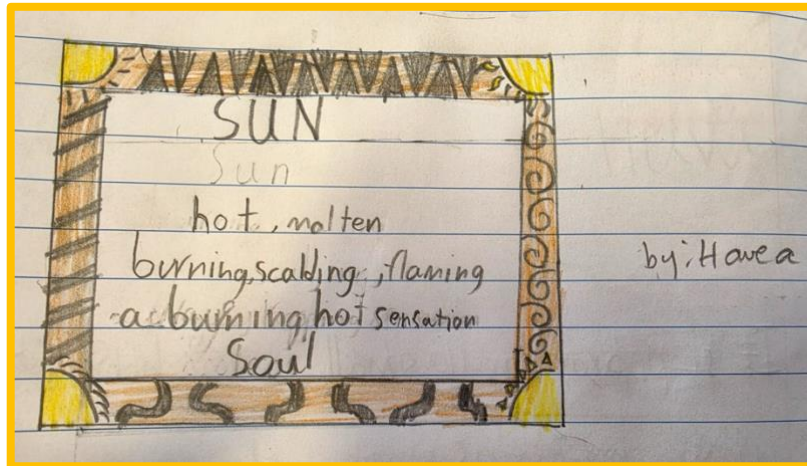 SUN
Sun
hot, molten
burning, scalding, flaming
a burning hot sensation
Soul
by: Havea